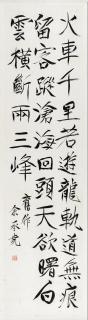 火車千里若遊龍軌道無痕
留客蹤滄海回頭天欲曙白
雲橫斷兩三峰
舊作
余承堯